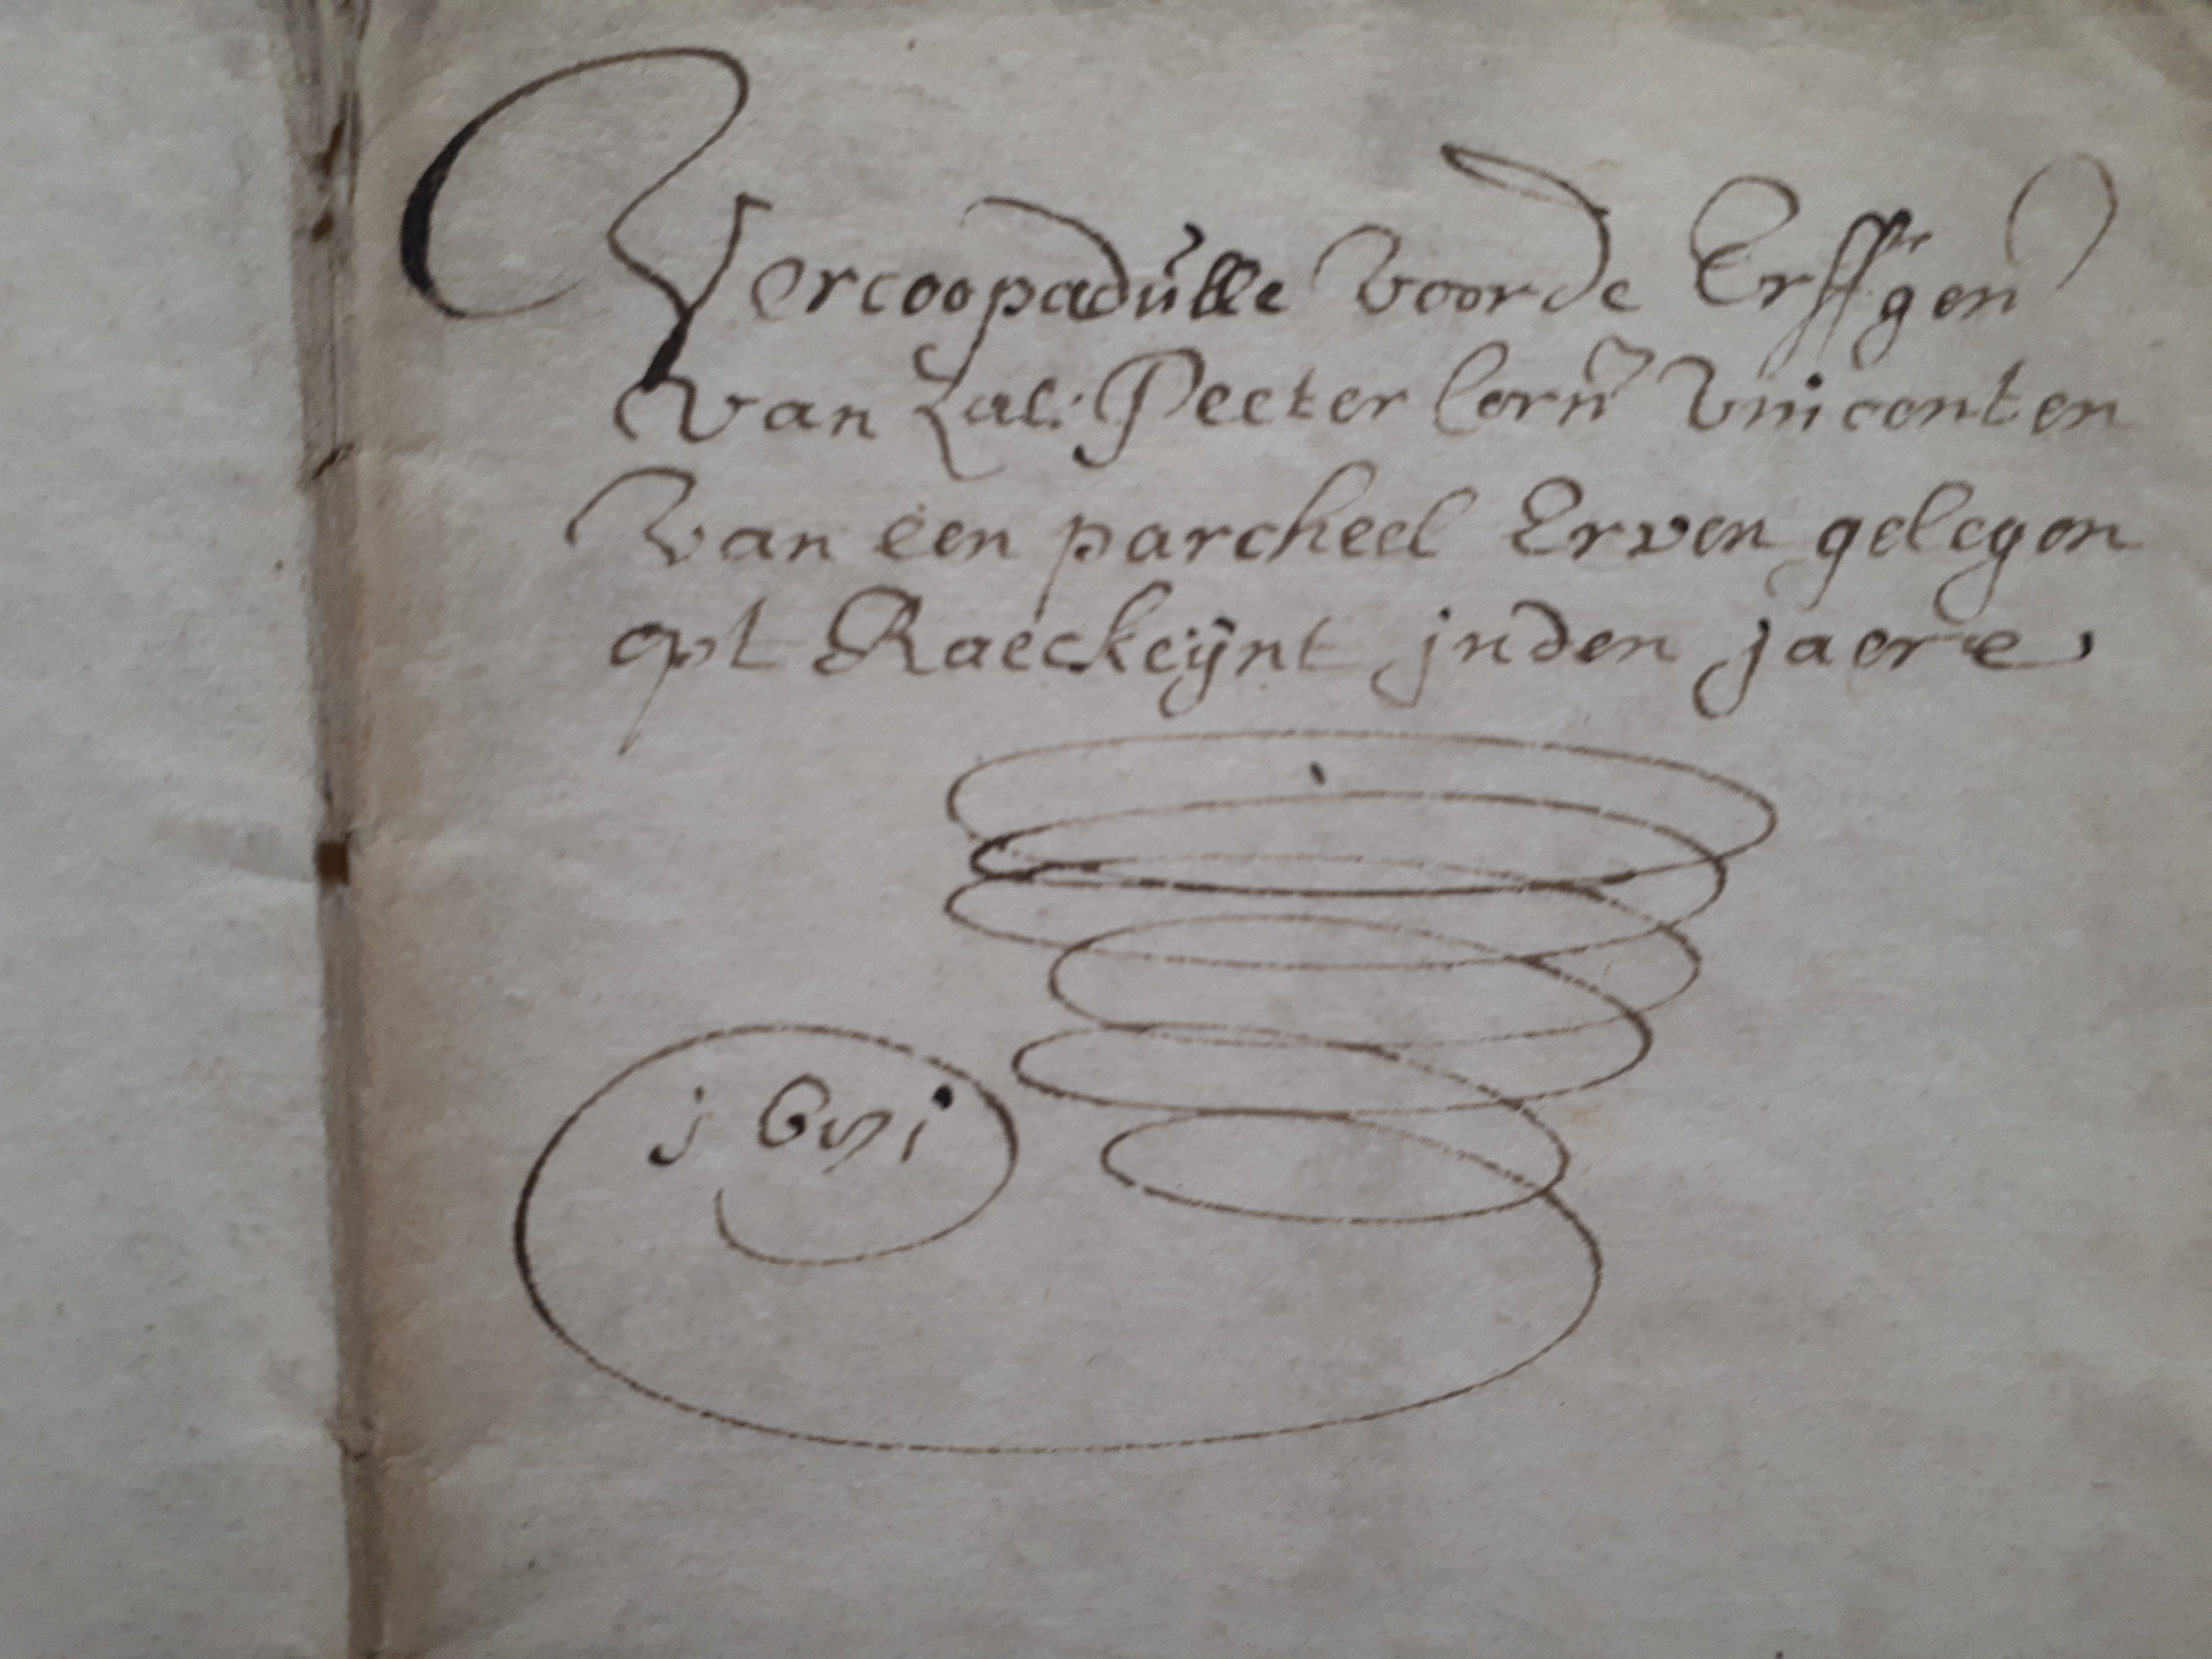 Vercoopadulle voor de Erffgen
van Zal: Peeter Corn Vincenten
Van een parcheel Erven gelegen
opt Raeckeijnt jnden jaere